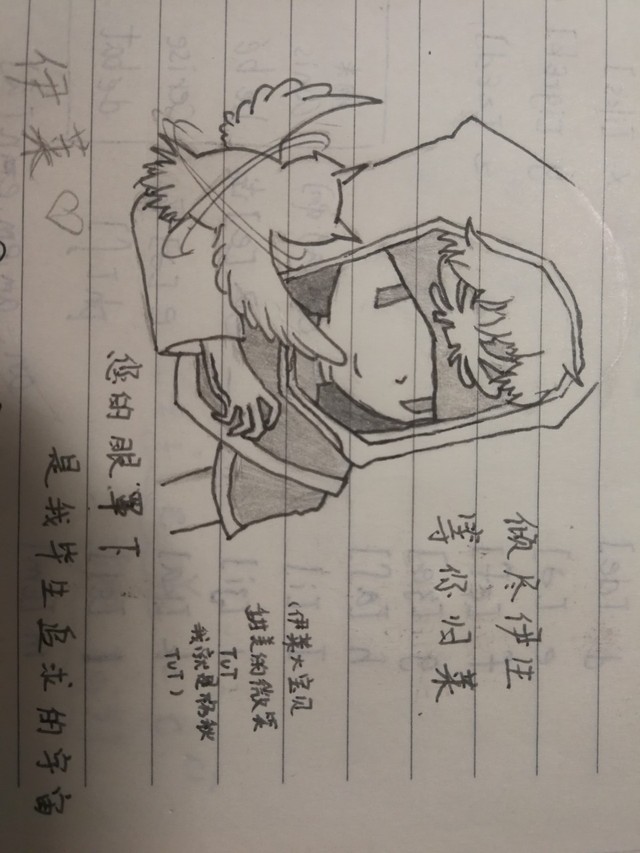 倾尽伊生
等你归莱
(伊莱大宝贝
甜美的微笑
TuT
我就是
TuT)
您的眼罩下
是我毕生追求的宇宙
伊莱♡